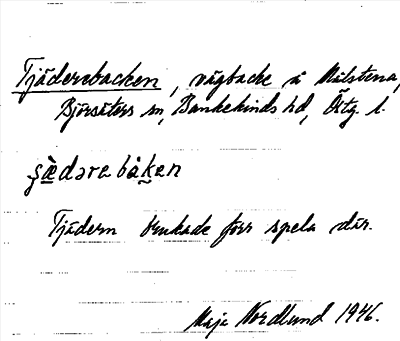 Tjäderebacken, vägbacke i Målstena,
Björsäters sn, Bankekinds hd, Östg. l.
ʂæ̀dərebàkən
Tjädern brukade förr spela där.
Maja Nordlund 1946.